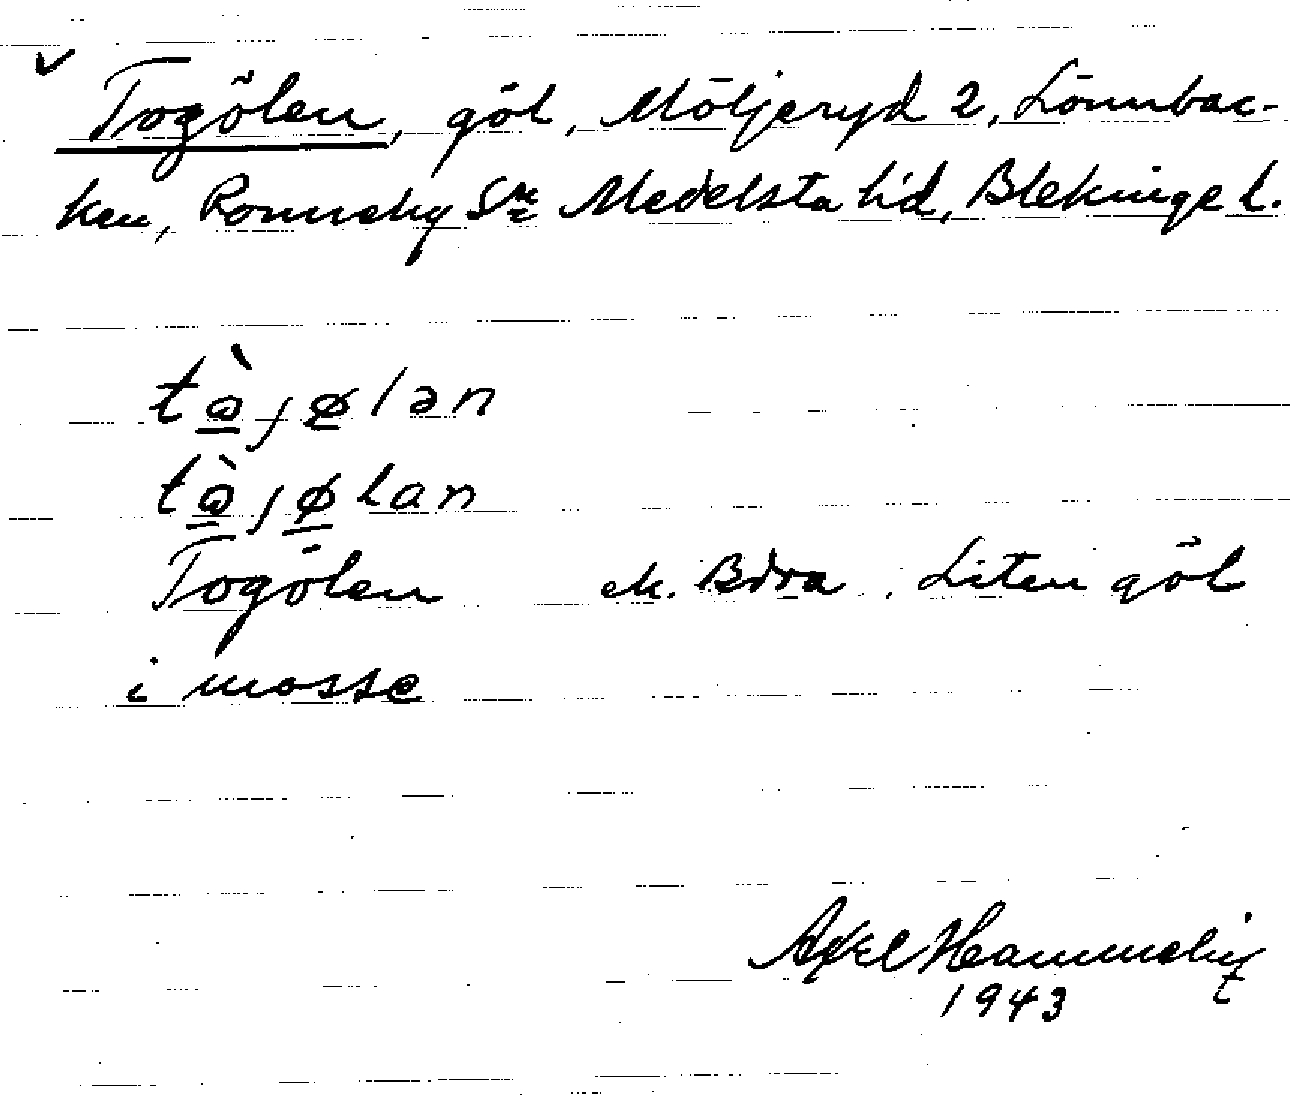 Togölen, göl, Möljeryd 2, Lönnbac-
ken, Ronneby Sn Medelsta hd, Blekinge l.
tò̱jø̱lən
tò̱jø̱lan
Togölen ek. Liten göl
i mosse
Axel
1943